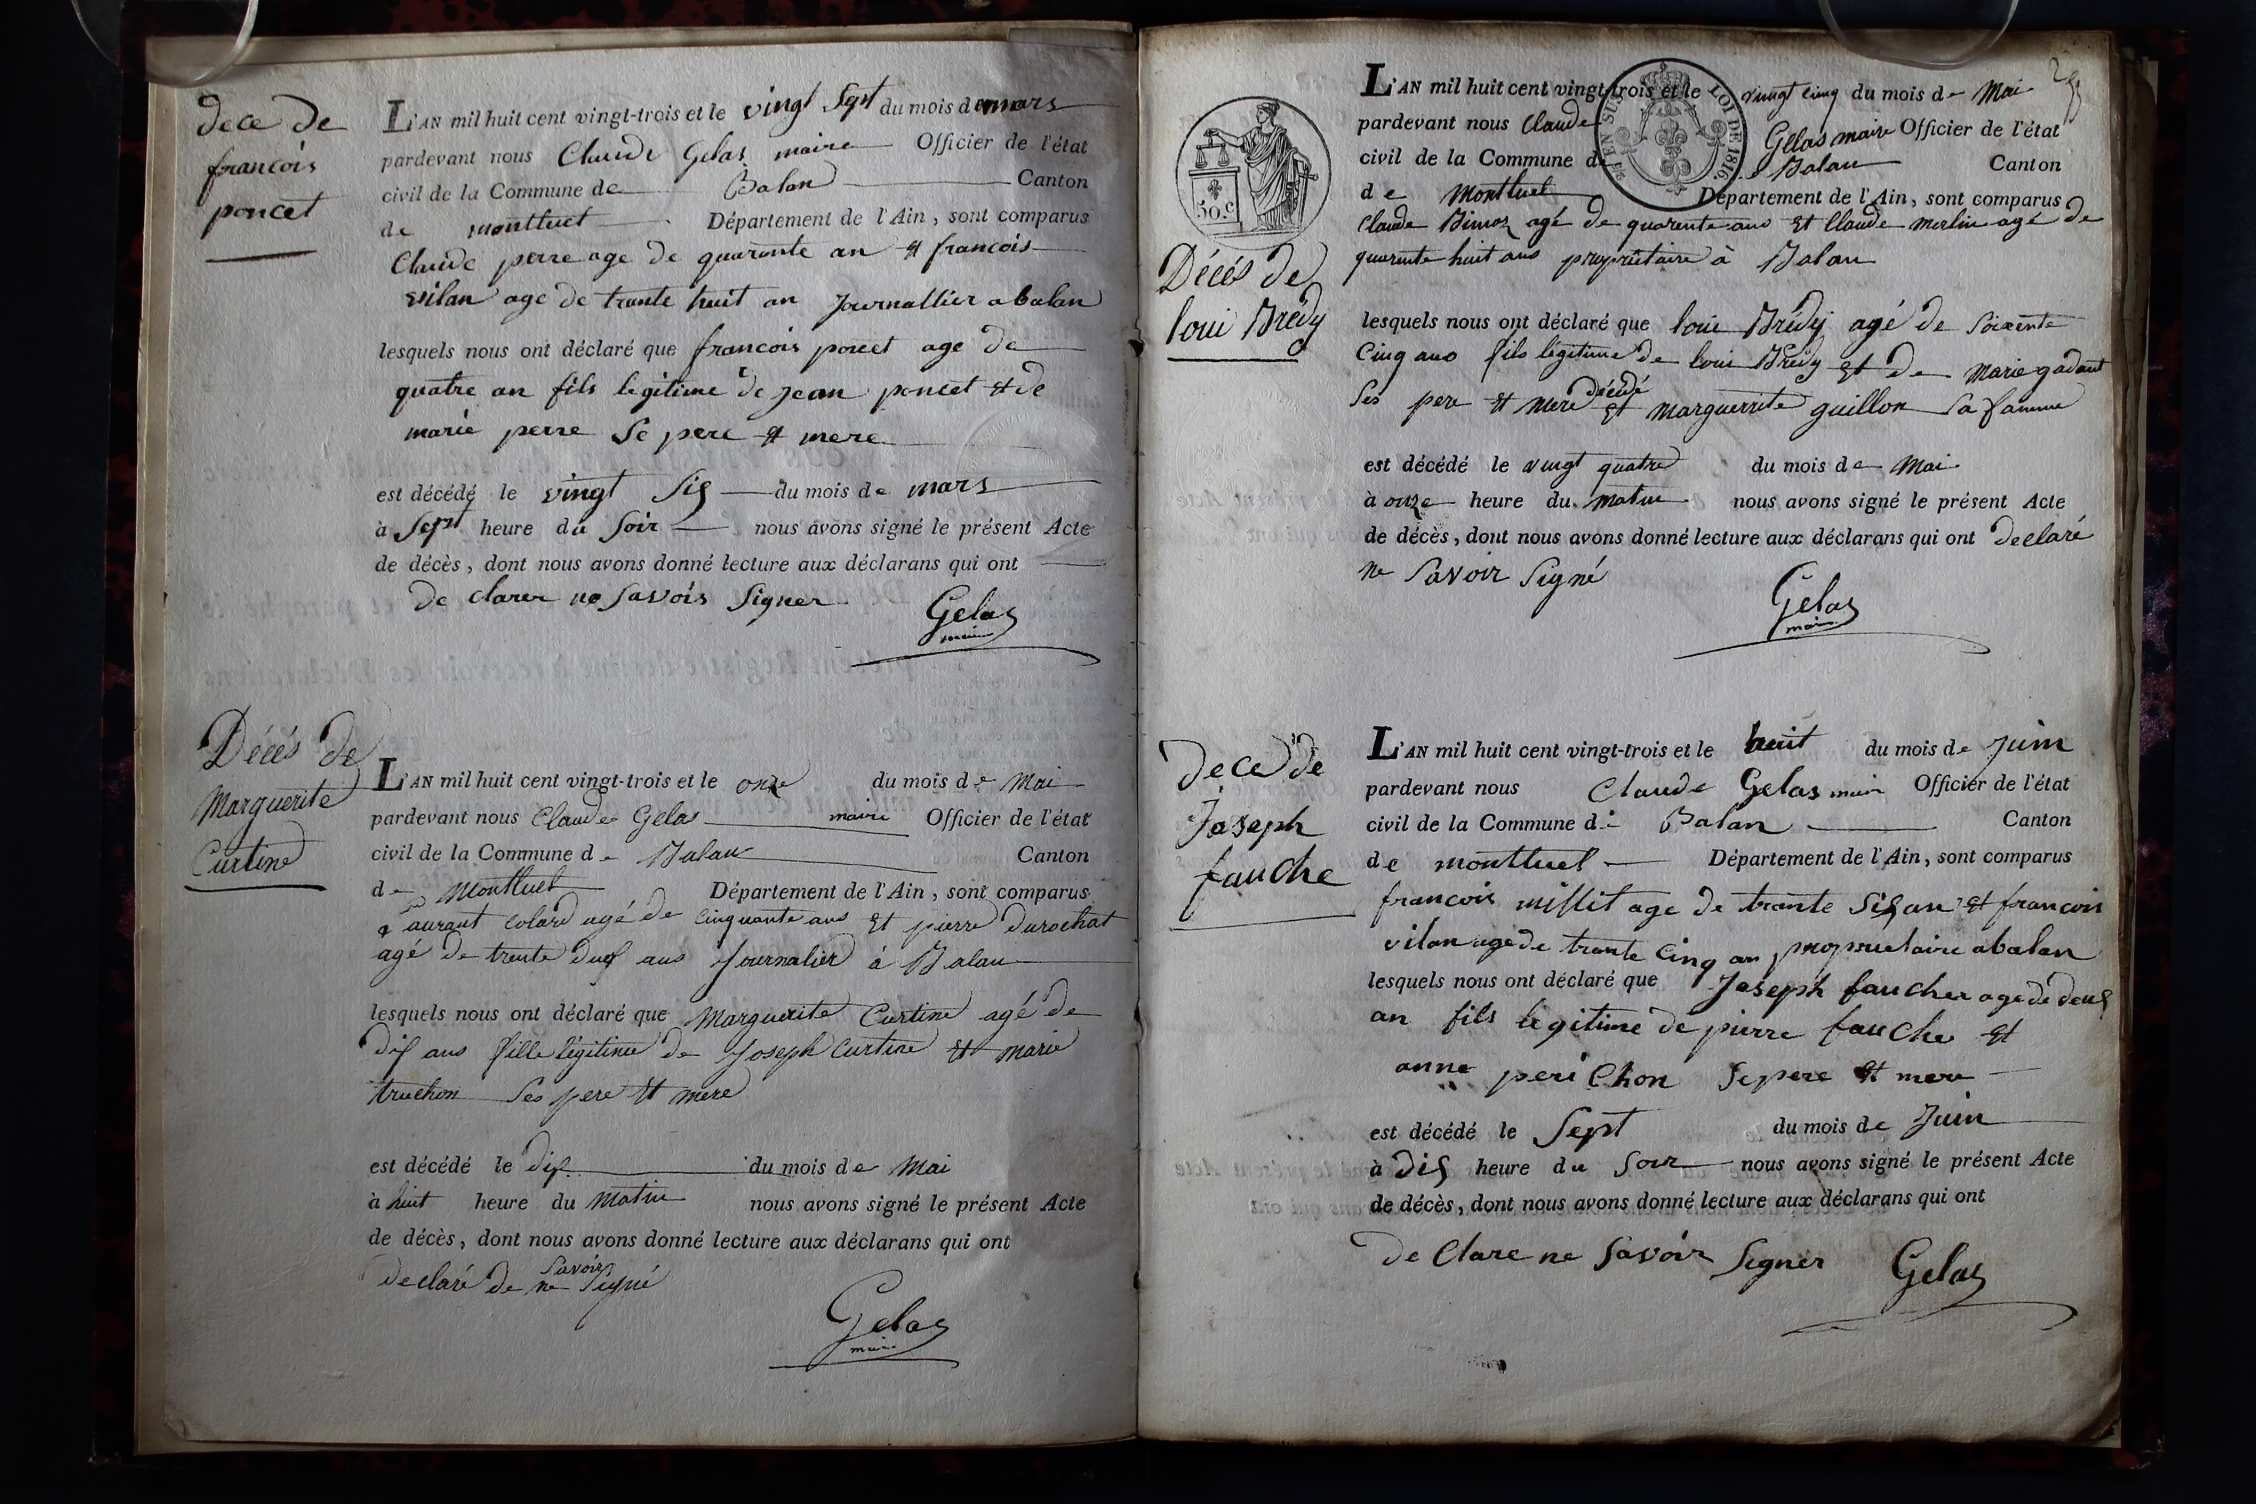 dece de
francois
poncet
L'AN mil huit cent vingt-trois et le vingt Sept du mois de mars
pardevant nous Claude Gelas maire Officier de l'état
civil de la Commune de Balan Canton
de montluel Département de l'Ain, sont comparus
Claude perre age de quarante an et francois
vilan age de trante huit an Journallier a balan
lesquels nous ont déclaré que francois poncet age de
quatre an fils legitime de jean poncet et de
marie perre Se pere et mere
est décédé le vingt Sis du mois de mars
à Sept heure du Soir nous avons signé le présent Acte
de décès, dont nous avons donné lecture aux déclarans qui ont
de clarer ne Savoir Signer
Gelas
maire
Décés de
Marguerite
Curtine
L'AN mil huit cent vingt-trois et le onze du mois de Mai
pardevant nous Claude Gelas maire Officier de l'état
civil de la Commune de Balan Canton
de Montluel Département de l'Ain, sont comparus
colard agé de cinquante ans Et pierre Durochat
agé de trente deux ans Journalier à Balan
lesquels nous ont déclaré que Marguerite Curtine agé de
dix ans fille légitime de Joseph Curtine Et marie
truchon Ses pere Et mere
est décédé le dix du mois de Mai
à huit heure du Matin nous avons signé le présent Acte
de décès, dont nous avons donné lecture aux déclarans qui ont
declaré de ne Savoir Signé
Gelas
maire
50 c
EN SUS
LOI DE 1816
Décés de
loui Brédy
L'AN mil huit cent vingt-trois et le vingt cinq du mois de Mai
pardevant nous Claude Gelas maire Officier de l'état
civil de la Commune de Balan Canton
de Montluel Département de l'Ain, sont comparus
Claude agé de quarente ans Et Claude Merlin agé de
quarente huit ans propriétaire à Balan
lesquels nous ont déclaré que loui Brédy agé de Soixente
Cinq ans fils légitime de loui Brédy Et de Marie gadant
Ses pere Et mere décédé Et Marguerrite guillon Sa famme
est décédé le vingt quatre du mois de Mai
à onze heure du matin nous avons signé le présent Acte
de décès, dont nous avons donné lecture aux déclarans qui ont declaré
ne Savoir Signé
Gelas
maire
dece de
Joseph
fauche
L'AN mil huit cent vingt-trois et le huit du mois de Juin
pardevant nous Claude Gelas mair Officier de l'état
civil de la Commune de Balan Canton
de montluel Département de l'Ain, sont comparus
francois millit age de trante Sis an Et francois
vilan age de trante Cinq an propriietaire a balan
lesquels nous ont déclaré que Joseph faucher age de deus
an fils legitime de pierre fauche Et
anne peri Chon Se pere Et mere
est décédé le Sept du mois de Juin
à dis heure du Soir nous avons signé le présent Acte
de décès, dont nous avons donné lecture aux déclarans qui ont
de Clare ne Savoir Signer
Gelas